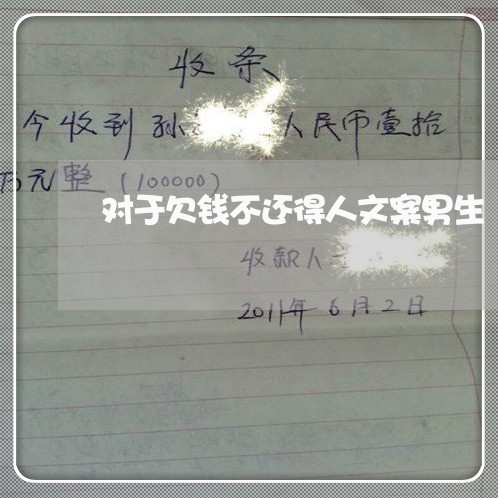 收条
今收到孙 人民币壹拾
万元整(100000)
对于欠钱不还得人文案男生
收款人
2011年6月2日